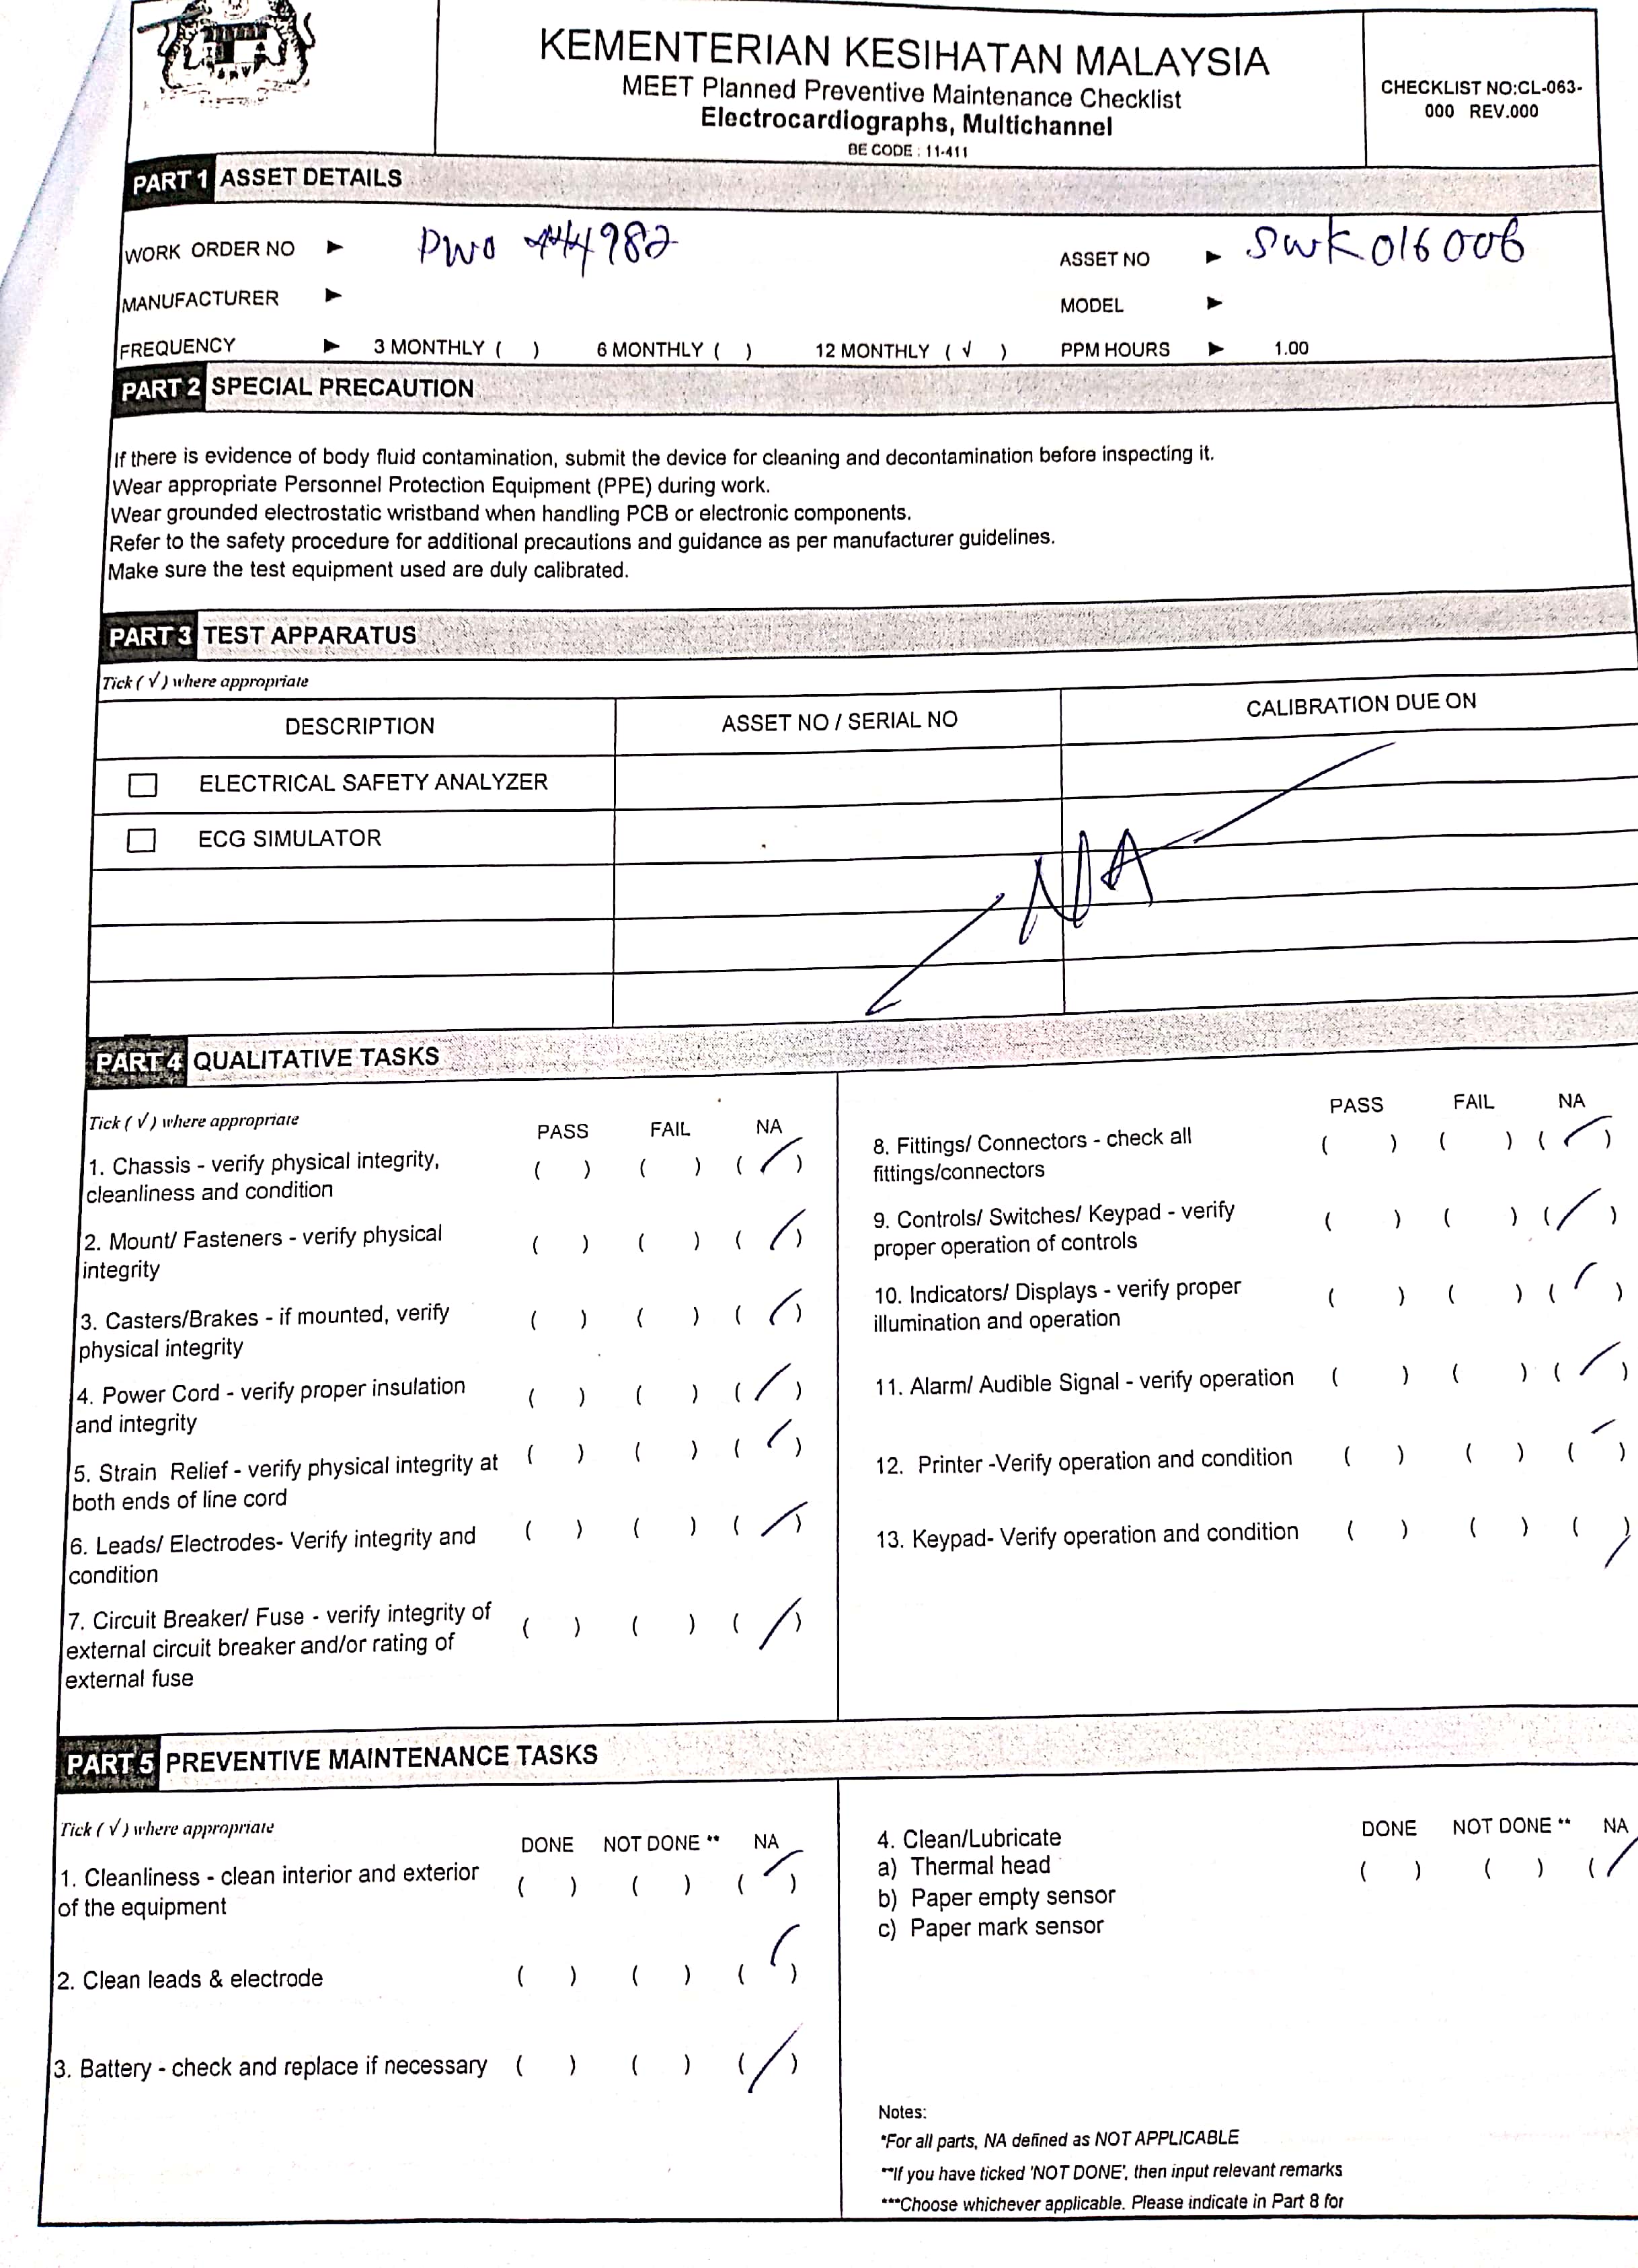 KEMENTERIAN KESIHATAN MALAYSIA
MEET Planned Preventive Maintenance Checklist
Electrocardiographs, Multichannel
BE CODE : 11-411
CHECKLIST NO:CL-063-
000 REV.000
PART 1 ASSET DETAILS
WORK ORDER NO ► PWO 444982 ASSET NO ► SWK016006
MANUFACTURER ► MODEL ►
FREQUENCY ► 3 MONTHLY ( ) 6 MONTHLY ( ) 12 MONTHLY ( √ ) PPM HOURS ► 1.00
PART 2 SPECIAL PRECAUTION
If there is evidence of body fluid contamination, submit the device for cleaning and decontamination before inspecting it.
Wear appropriate Personnel Protection Equipment (PPE) during work.
Wear grounded electrostatic wristband when handling PCB or electronic components.
Refer to the safety procedure for additional precautions and guidance as per manufacturer guidelines.
Make sure the test equipment used are duly calibrated.
PART 3 TEST APPARATUS
Tick ( √ ) where appropriate
DESCRIPTION ASSET NO / SERIAL NO CALIBRATION DUE ON
ELECTRICAL SAFETY ANALYZER
ECG SIMULATOR
N/A
PART 4 QUALITATIVE TASKS
Tick ( √ ) where appropriate
PASS FAIL NA
1. Chassis - verify physical integrity, ( ) ( ) ( / )
cleanliness and condition
2. Mount/ Fasteners - verify physical ( ) ( ) ( / )
integrity
3. Casters/Brakes - if mounted, verify ( ) ( ) ( / )
physical integrity
4. Power Cord - verify proper insulation ( ) ( ) ( / )
and integrity
5. Strain Relief - verify physical integrity at ( ) ( ) ( / )
both ends of line cord
6. Leads/ Electrodes- Verify integrity and ( ) ( ) ( / )
condition
7. Circuit Breaker/ Fuse - verify integrity of ( ) ( ) ( / )
external circuit breaker and/or rating of
external fuse
PASS FAIL NA
8. Fittings/ Connectors - check all ( ) ( ) ( / )
fittings/connectors
9. Controls/ Switches/ Keypad - verify ( ) ( ) ( / )
proper operation of controls
10. Indicators/ Displays - verify proper ( ) ( ) ( / )
illumination and operation
11. Alarm/ Audible Signal - verify operation ( ) ( ) ( / )
12. Printer -Verify operation and condition ( ) ( ) ( / )
13. Keypad- Verify operation and condition ( ) ( ) ( / )
PART 5 PREVENTIVE MAINTENANCE TASKS
Tick ( √ ) where appropriate
DONE NOT DONE ** NA
1. Cleanliness - clean interior and exterior ( ) ( ) ( / )
of the equipment
2. Clean leads & electrode ( ) ( ) ( / )
3. Battery - check and replace if necessary ( ) ( ) ( / )
DONE NOT DONE ** NA
4. Clean/Lubricate
a) Thermal head ( ) ( ) ( /
b) Paper empty sensor
c) Paper mark sensor
Notes:
*For all parts, NA defined as NOT APPLICABLE
**If you have ticked 'NOT DONE', then input relevant remarks
***Choose whichever applicable. Please indicate in Part 8 for